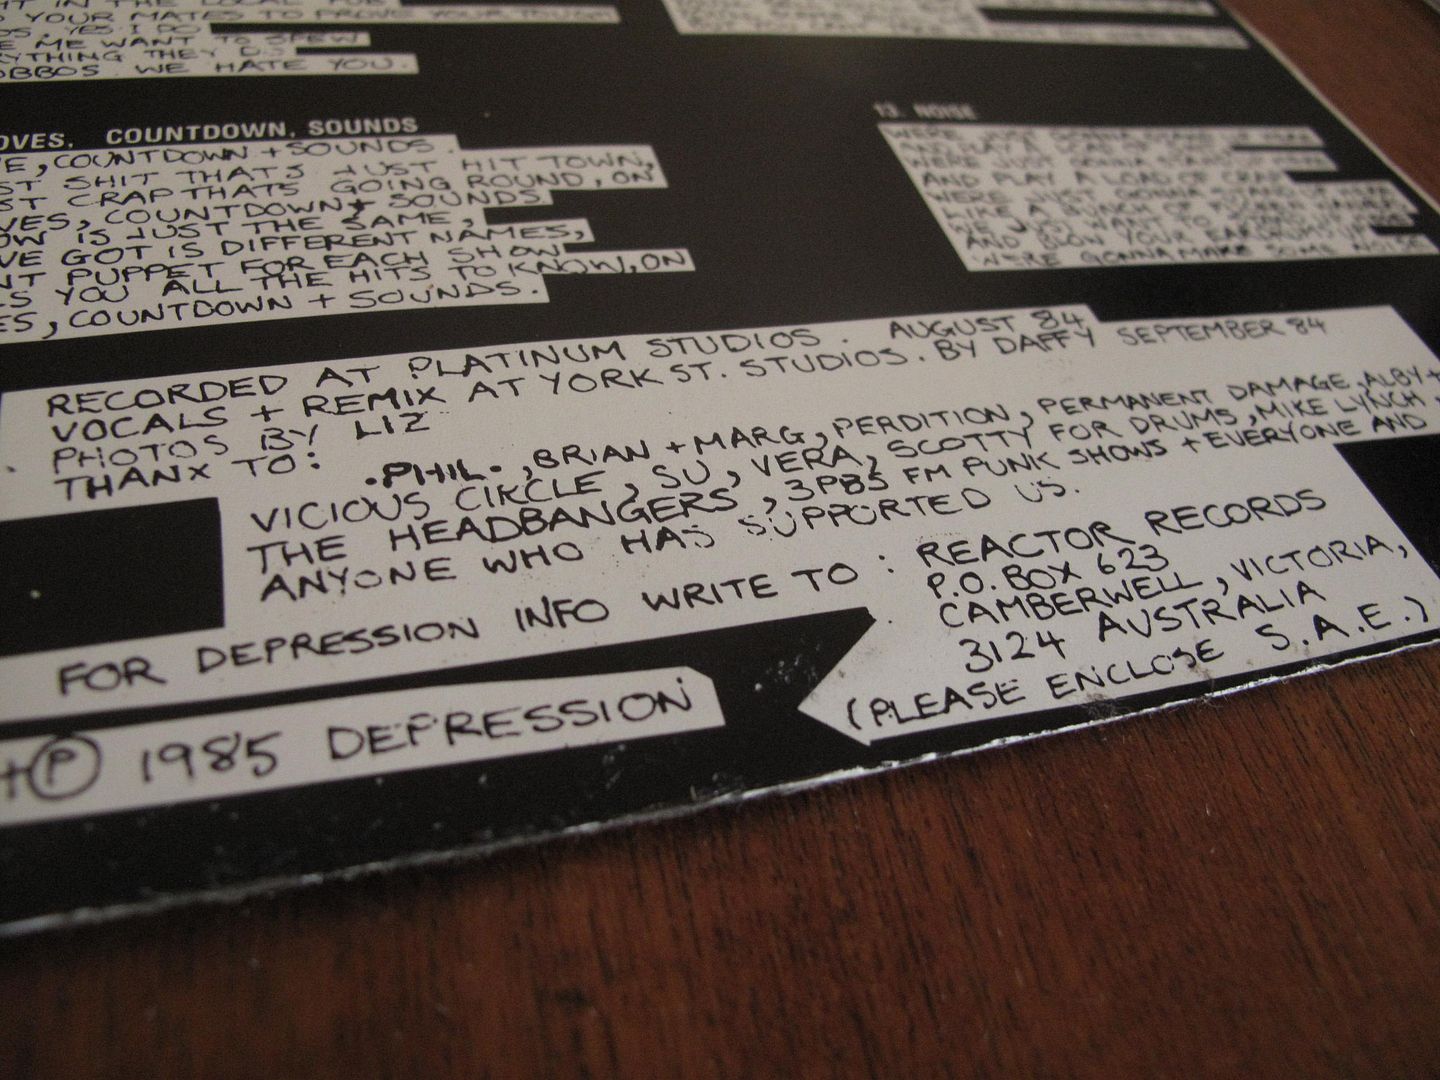 IN THE LOCAL PUB
YOUR MATES TO PROVE YOUR
YES I DO
ME WANT TO SPEW
THEY DO
WE HATE YOU.
OVES, COUNTDOWN, SOUNDS
, COUNTDOWN + SOUNDS
SHIT THATS JUST HIT TOWN,
CRAP THATS GOING ROUND, ON
VES, COUNTDOWN + SOUNDS
OW IS JUST THE SAME,
VE GOT IS DIFFERENT NAMES,
NT PUPPET FOR EACH SHOW
YOU ALL THE HITS TO KNOW, ON
ES, COUNTDOWN + SOUNDS.
13. NOISE
WERE JUST GONNA
AND PLAY A LOAD OF CRAP
WERE JUST GONNA STAND UP HERE
AND PLAY A LOAD OF CRAP
WERE JUST GONNA
LIKE A BUNCH OF
WE JUST WANT TO
AND BLOW YOUR EARDRUMS
WERE GONNA MAKE SOME NOISE
RECORDED AT PLATINUM STUDIOS. AUGUST 84
VOCALS + REMIX AT YORK ST. STUDIOS. BY DAFFY SEPTEMBER 84
PHOTOS BY LIZ
THANX TO: .PHIL., BRIAN + MARG, PERDITION, PERMANENT DAMAGE, ALBY +
VICIOUS CIRCLE, SU, VERA, SCOTTY FOR DRUMS, MIKE LYNCH,
THE HEADBANGERS, 3PBS FM PUNK SHOWS + EVERYONE AND
ANYONE WHO HAS SUPPORTED US.
FOR DEPRESSION INFO WRITE TO: REACTOR RECORDS
P.O. BOX 623
CAMBERWELL, VICTORIA,
3124 AUSTRALIA
(PLEASE ENCLOSE S.A.E.)
+ Ⓟ 1985 DEPRESSION